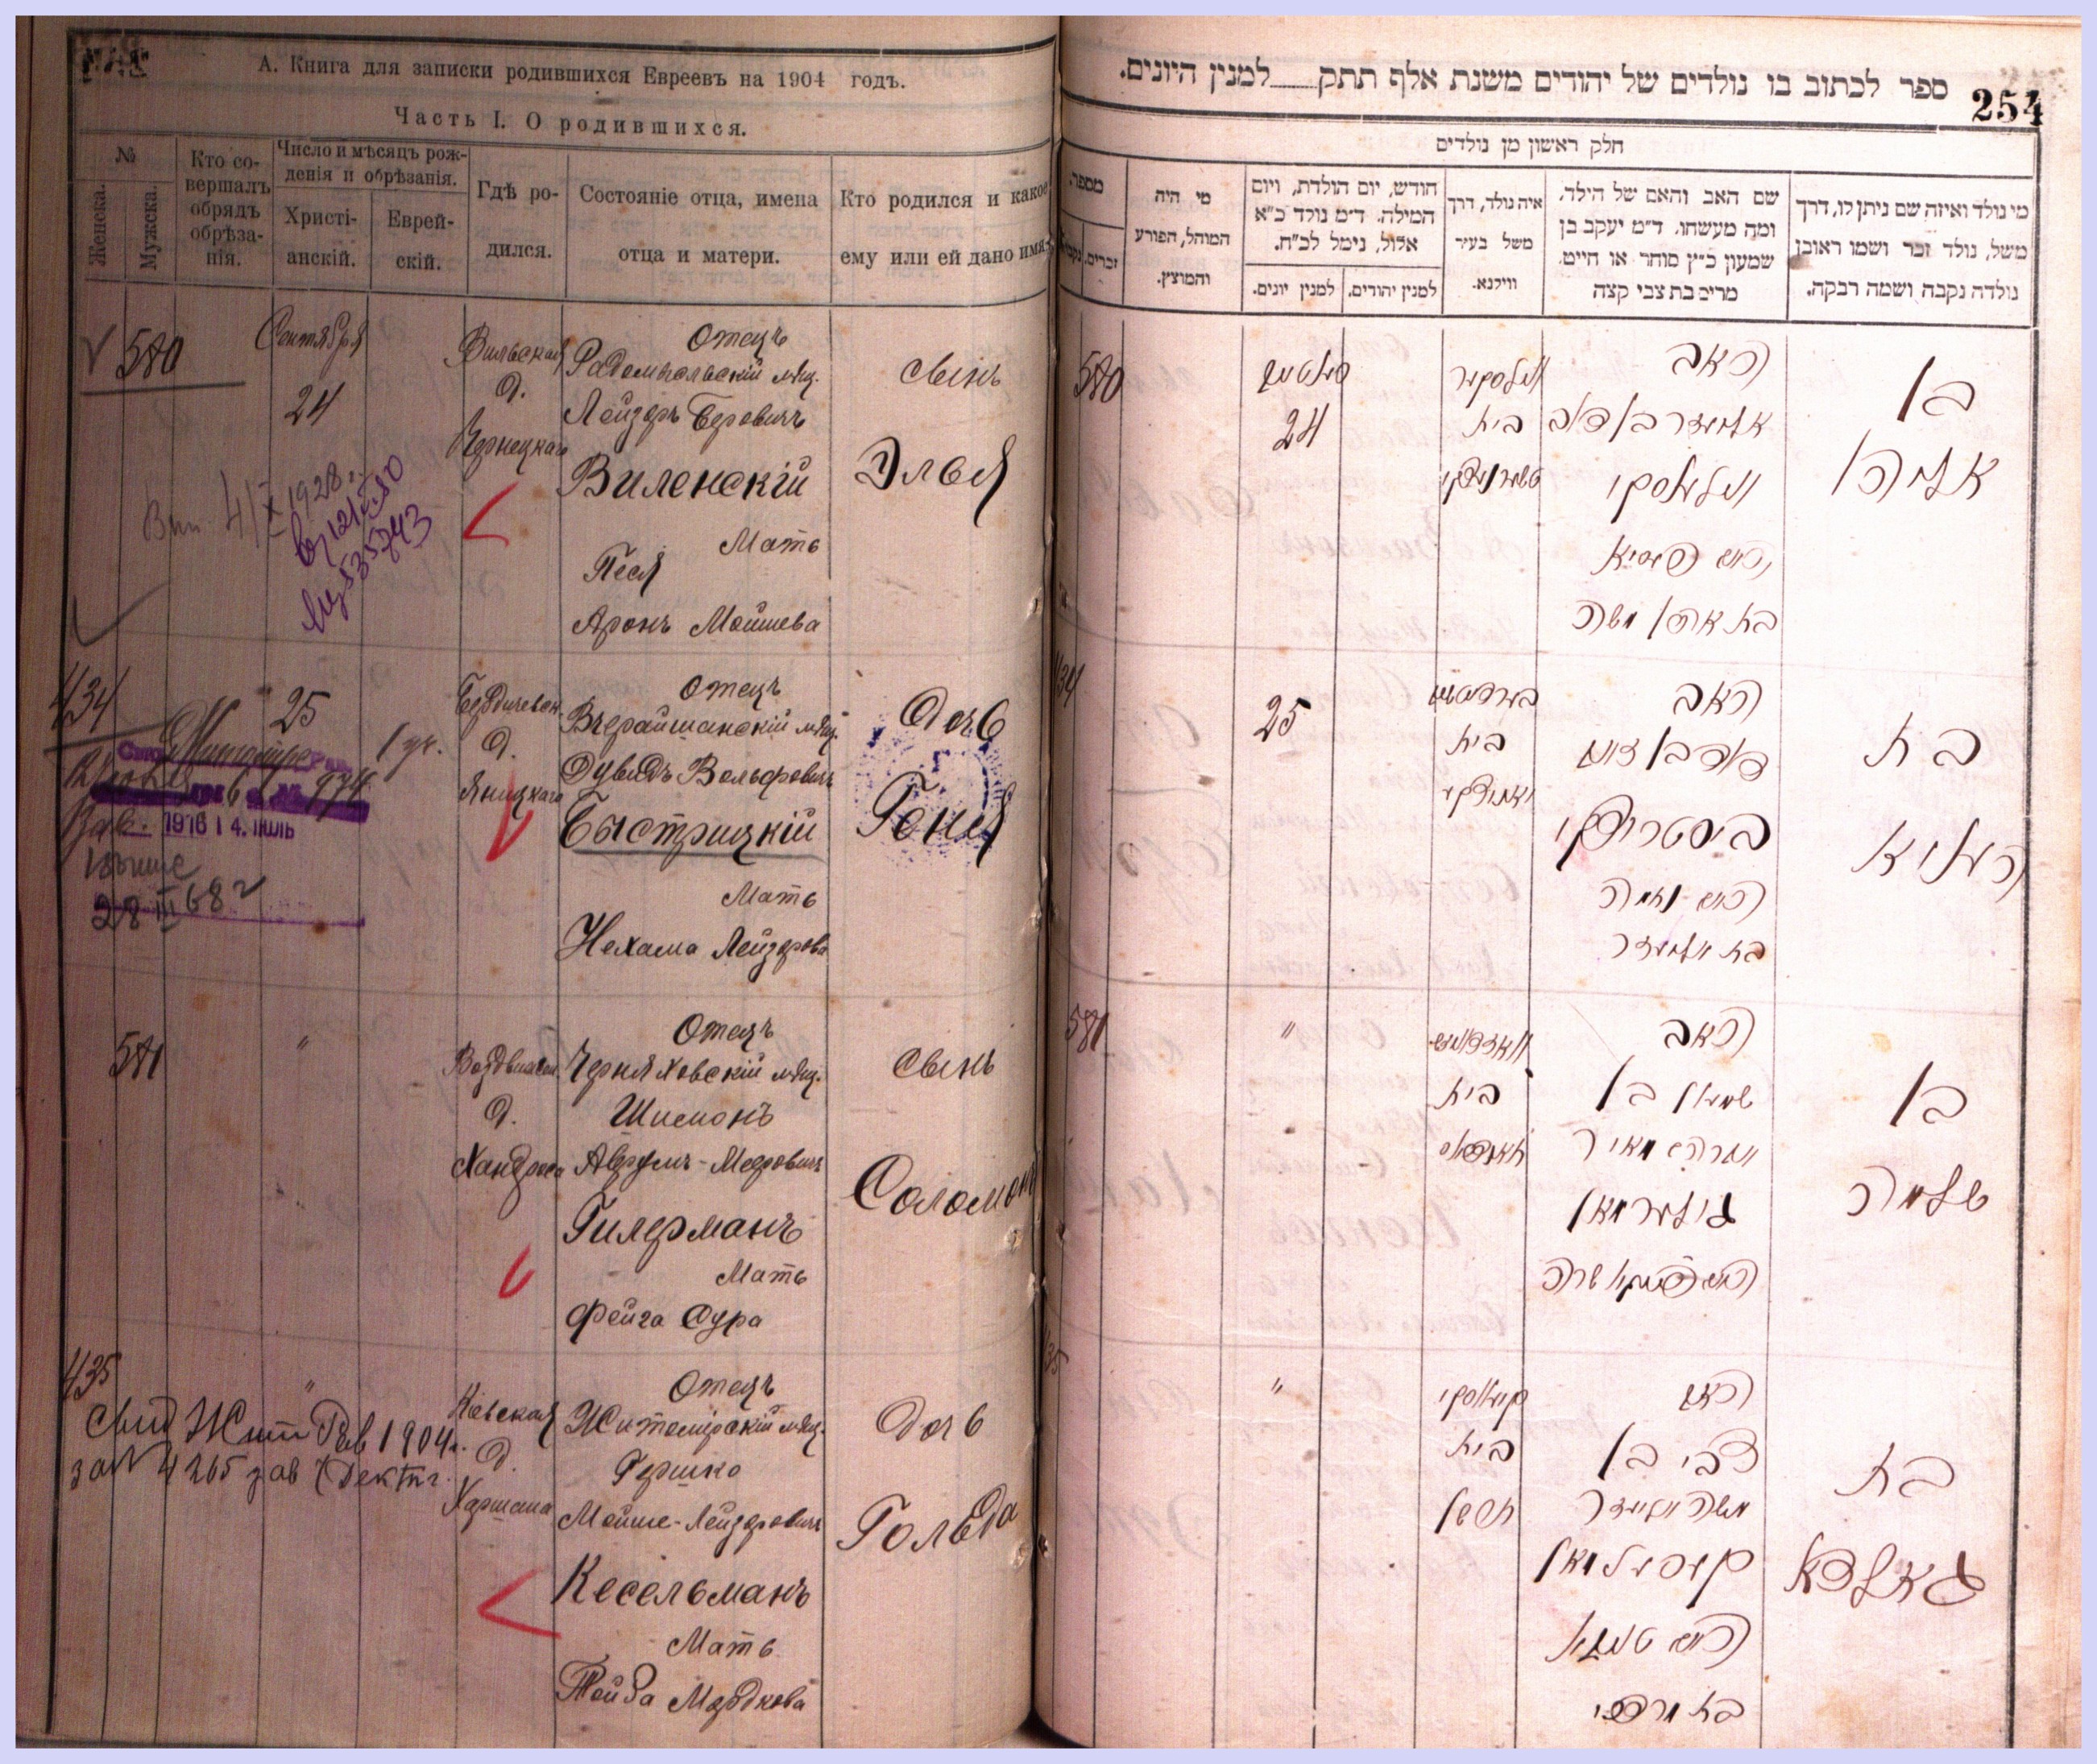 А. Книга для записки родившихся Евреевъ на 1904 годъ.
Часть I. О родившихся.
№
Женска.
Мужска.
Кто со-
вершалъ
обрядъ
обрѣза-
нія.
Число и мѣсяцъ рож-
денія и обрѣзанія.
Христі-
анскій.
Еврей-
скій.
Гдѣ ро-
дился.
Состояніе отца, имена
отца и матери.
Кто родился и какое
ему или ей дано имя.
580
Сентября
24
Вильская
д.
Чернецкаго
Отецъ
Радомысльскій мѣщ.
Лейзеръ Беровичъ
Виленскій
Мать
Песя
Аронъ Мойшева
сынъ
Элья
1928
434
25
1916 г. 4. июль
28 III 68 г
Бердичевск.
д.
Яницкаго
Отецъ
Вчерайшанскій мѣщ.
Дувидъ Вольфовичъ
Быстрицкій
Мать
Нехама Лейзерова
Дочь
Геня
581
"
Воздвижен
д.
Хандроса
Отецъ
Черняховскій мѣщ.
Шимонъ
Аврумъ-Мееровичъ
Гилерманъ
Мать
Фейга Сура
сынъ
Соломонъ
435
"
Свид Жит Рав 1904 г.
за № 4265
Кіевская
д.
Хершана
Отецъ
Житомірскій мѣщ.
Гершко
Мойше-Лейзеровичъ
Кесельманъ
Мать
Тойба Мордкова
дочь
Гольда
254
ספר לכתוב בו נולדים של יהודים משנת אלף תתק___למנין היונים.
חלק ראשון מן נולדים
מספר.
זכרים.
נקבות
מי היה
המוהל, הפורע
והמוצץ.
חודש, יום הולדת, ויום
המילה. ד"מ נולד כ"א
אלול, נימל לכ"ח.
למנין יונים.
למנין יהודים.
איה נולד, דרך
משל בעיר
ווילנא.
שם האב והאם של הילד,
ומה מעשהו. ד"מ יעקב בן
שמעון כ"ץ סוחר או חייט,
מרים בת צבי קצה
מי נולד ואיזה שם ניתן לו, דרך
משל, נולד זכר ושמו ראובן
נולדה נקבה ושמה רבקה.
580
24
בית
האב
אליעזר בן דוב
ווילענסקי
האם פעסיא
בת אהרן משה
בן
אליהו
434
25
בית
האב
דוד בן זאב
ביסטריצקי
האם נחמה
בת אליעזר
בת
העניא
581
"
בית
האב
שמעון בן
אברהם מאיר
גילערמאן
האם פייגא שרה
בן
שלמה
435
"
בית
האב
צבי בן
משה אליעזר
קעסעלמאן
האם טויבא
בת מרדכי
בת
גאלדא